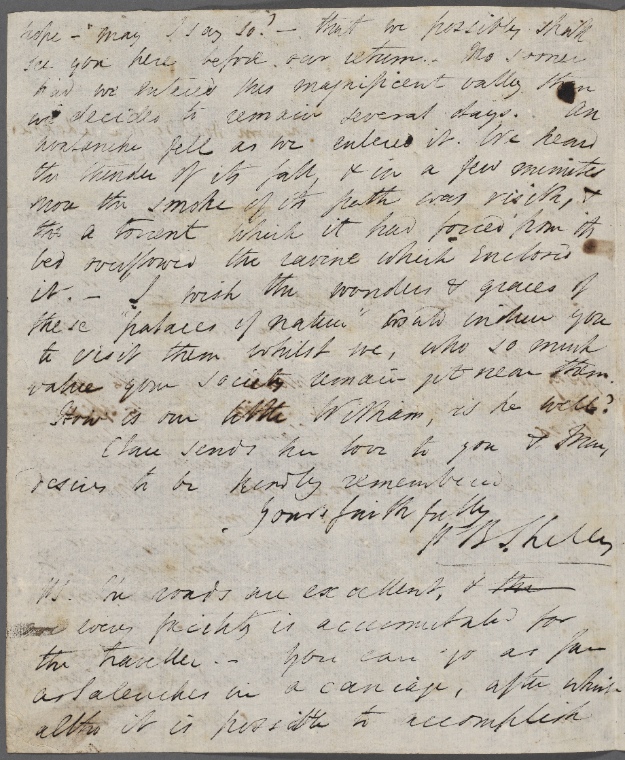 hope - "may I say so? - that we possibly shall
see you here before our return. - No sooner
had we entered this magnificent valley than
we decided to remain several days. An
avalanche fell as we entered it. We heard
the thunder of its fall, & in a few minutes
more the smoke of its path was visible, &
a torrent which it had forced from its
bed overflowed the ravine which enclosed
it. - I wish the wonders & graces of
these "palaces of nature" would induce you
to visit them whilst we, who so much
value your society remain yet near them.
How is our little William, is he well?
Clare sends her love to you & Mary
desires to be kindly remembered
Yours faithfully
P B Shelley
PS. The roads are excellent, & the
every facility is accumulated for
the traveller. - You can go as far
as Salenches in a carriage, after which
altho it is possible to accomplish